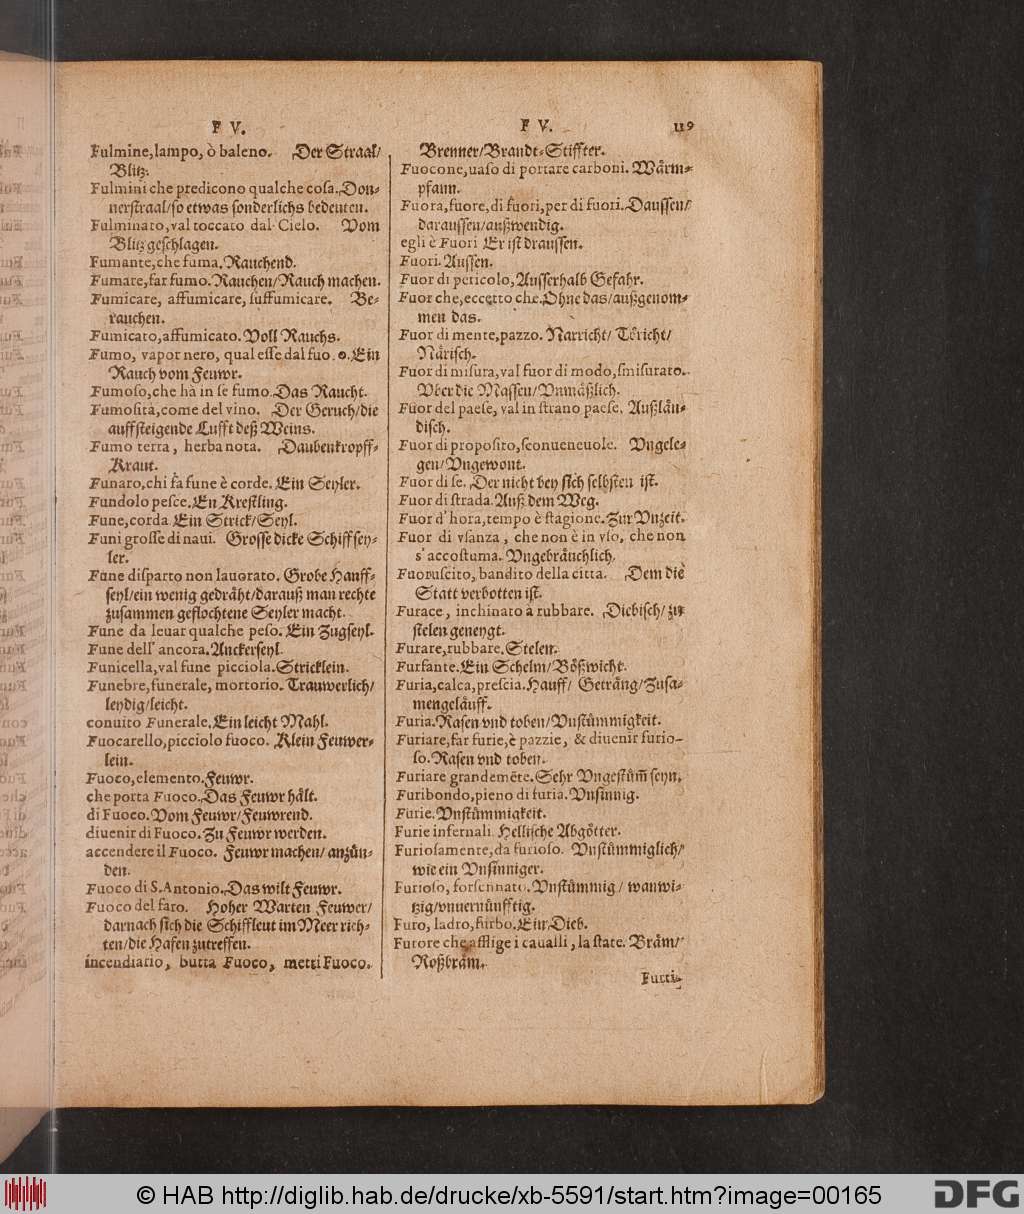 F V.
Fulmine, lampo, ò baleno. Der Straal/
Blitz.
Fulmini che predicono qualche cosa. Don-
nerstraal/so etwas sonderlichs bedeuten.
Fulminato, val toccato dal Cielo. Vom
Blitz geschlagen.
Fumante, che fuma. Rauchend.
Fumare, far fumo. Rauchen/Rauch machen.
Fumicare, affumicare, suffumicare. Be-
rauchen.
Fumicato, affumicato. Voll Rauchs.
Fumo, vapor nero, qual esse dal fuo. o. Ein
Rauch vom Feuwr.
Fumoso, che hà in se fumo. Das Raucht.
Fumosità, come del vino. Der Geruch/die
auffsteigende Lufft deß Weins.
Fumo terra, herba nota. Daubenkropff-
Kraut.
Funaro, chi fa fune è corde. Ein Seyler.
Fundolo pesce. En Kreßling.
Fune, corda Ein Strick/Seyl.
Funi grosse di naui. Grosse dicke Schiffsey-
ler.
Fune disparto non lauorato. Grobe Hanff-
seyl/ein wenig gedräht/darauß man rechte
zusammen geflochtene Seyler macht.
Fune da leuar qualche peso. Ein Zugseyl.
Fune dell' ancora. Anckerseyl.
Funicella, val fune picciola. Stricklein.
Funebre, funerale, mortorio. Trauwerlich/
leydig/leicht.
conuito Funerale. Ein leicht Mahl.
Fuocarello, picciolo fuoco. Klein Feuwer-
lein.
Fuoco, elemento. Feuwr.
che porta Fuoco. Das Feuwr hält.
di Fuoco. Vom Feuwr/Feuwrend.
diuenir di Fuoco. Zu Feuwr werden.
accendere il Fuoco. Feuwr machen/anzün-
den.
Fuoco di S. Antonio. Das wilt Feuwr.
Fuoco del faro. Hoher Warten Feuwer/
darnach sich die Schiffleut im Meer rich-
ten/die Hafen zutreffen.
incendiario, butta Fuoco, metti Fuoco.
F V. 119
Brenner/Brandt-Stiffter.
Fuocone, uaso di portare carboni. Wärm-
pfann.
Fuora, fuore, di fuori, per di fuori. Daussen/
daraussen/außwendig.
egli è Fuori Er ist draussen.
Fuori. Aussen.
Fuor di pericolo, Ausserhalb Gefahr.
Fuor che, eccetto che. Ohne das/außgenom-
men das.
Fuor di mente, pazzo. Narricht/ Töricht/
Närisch.
Fuor di misura, val fuor di modo, smisurato.
Vber die Massen/Vnmäßlich.
Fuor del paese, val in strano paese. Außlän-
disch.
Fuor di proposito, sconueneuole. Vngele-
gen/Vngewont.
Fuor di se. Der nicht bey sich selbsten ist.
Fuor di strada. Auß dem Weg.
Fuor d'hora, tempo è stagione. Zur Vnzeit.
Fuor di vsanza, che non è in vso, che non
s'accostuma. Vngebräuchlich.
Fuoruscito, bandito della citta. Dem die
Statt verbotten ist.
Furace, inchinato à rubbare. Diebisch/zu
stelen geneygt.
Furare, rubbare. Stelen.
Furfante. Ein Schelm/Bößwicht.
Furia, calca, prescia. Hauff/ Geträng/Zusa-
mengeläuff.
Furia. Rasen vnd toben/Vnstümmigkeit.
Furiare, far furie, è pazzie, & diuenir furio-
so. Rasen vnd toben.
Furiare grandemēte. Sehr Vngestüm̄ seyn.
Furibondo, pieno di furia. Vnsinnig.
Furie. Vnstümmigkeit.
Furie infernali. Hellische Abgötter.
Furiosamente, da furioso. Vnstümmiglich/
wie ein Vnsinniger.
Furioso, forsennato. Vnstümmig/ wanwi-
tzig/vnuernünfftig.
Furo, ladro, furbo. Ein Dieb.
Furore che afflige i caualli, la state. Bräm/
Roßbräm.
Furti-
© HAB http://diglib.hab.de/drucke/xb-5591/start.htm?image=00165
DFG